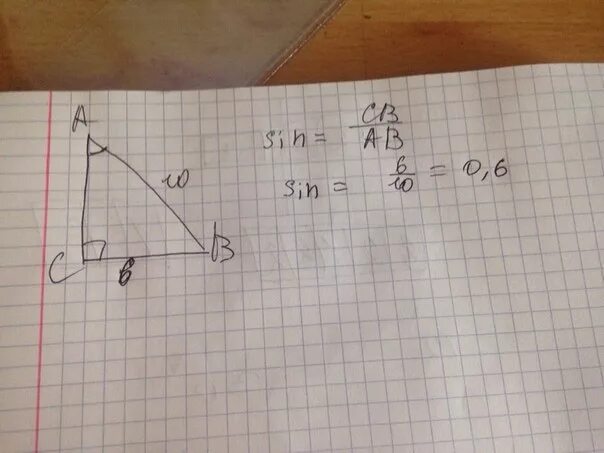 A
10
C
B
6
sin = CB/AB
sin = 6/10 = 0,6